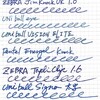 ZEBRA Jim Knock UK 1.0
Uni ball eye
uniball VISION ELITE
Pentel Energel Knock
ZEBRA Tapli Clip 1.6
Uni ball Signo